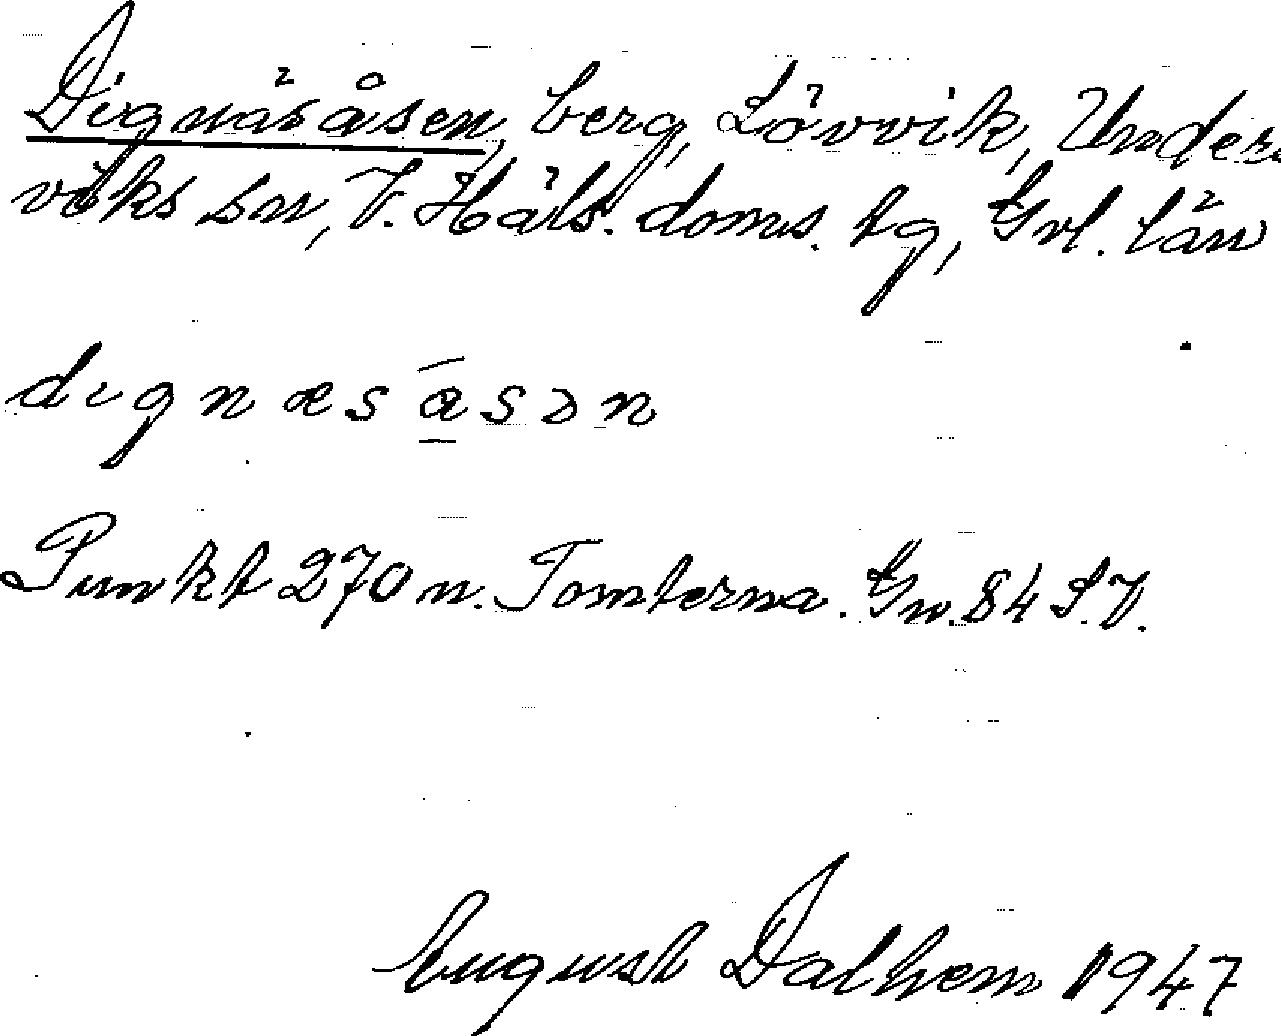 Dignäsåsen, berg, Lövvik, Unders-
viks sn, V. Häls. doms. tg, Gvl. län
dignæsā̲sən
Punkt 270 n. Tomterna. Gn. 84 S.V.
August Dalhem 1947